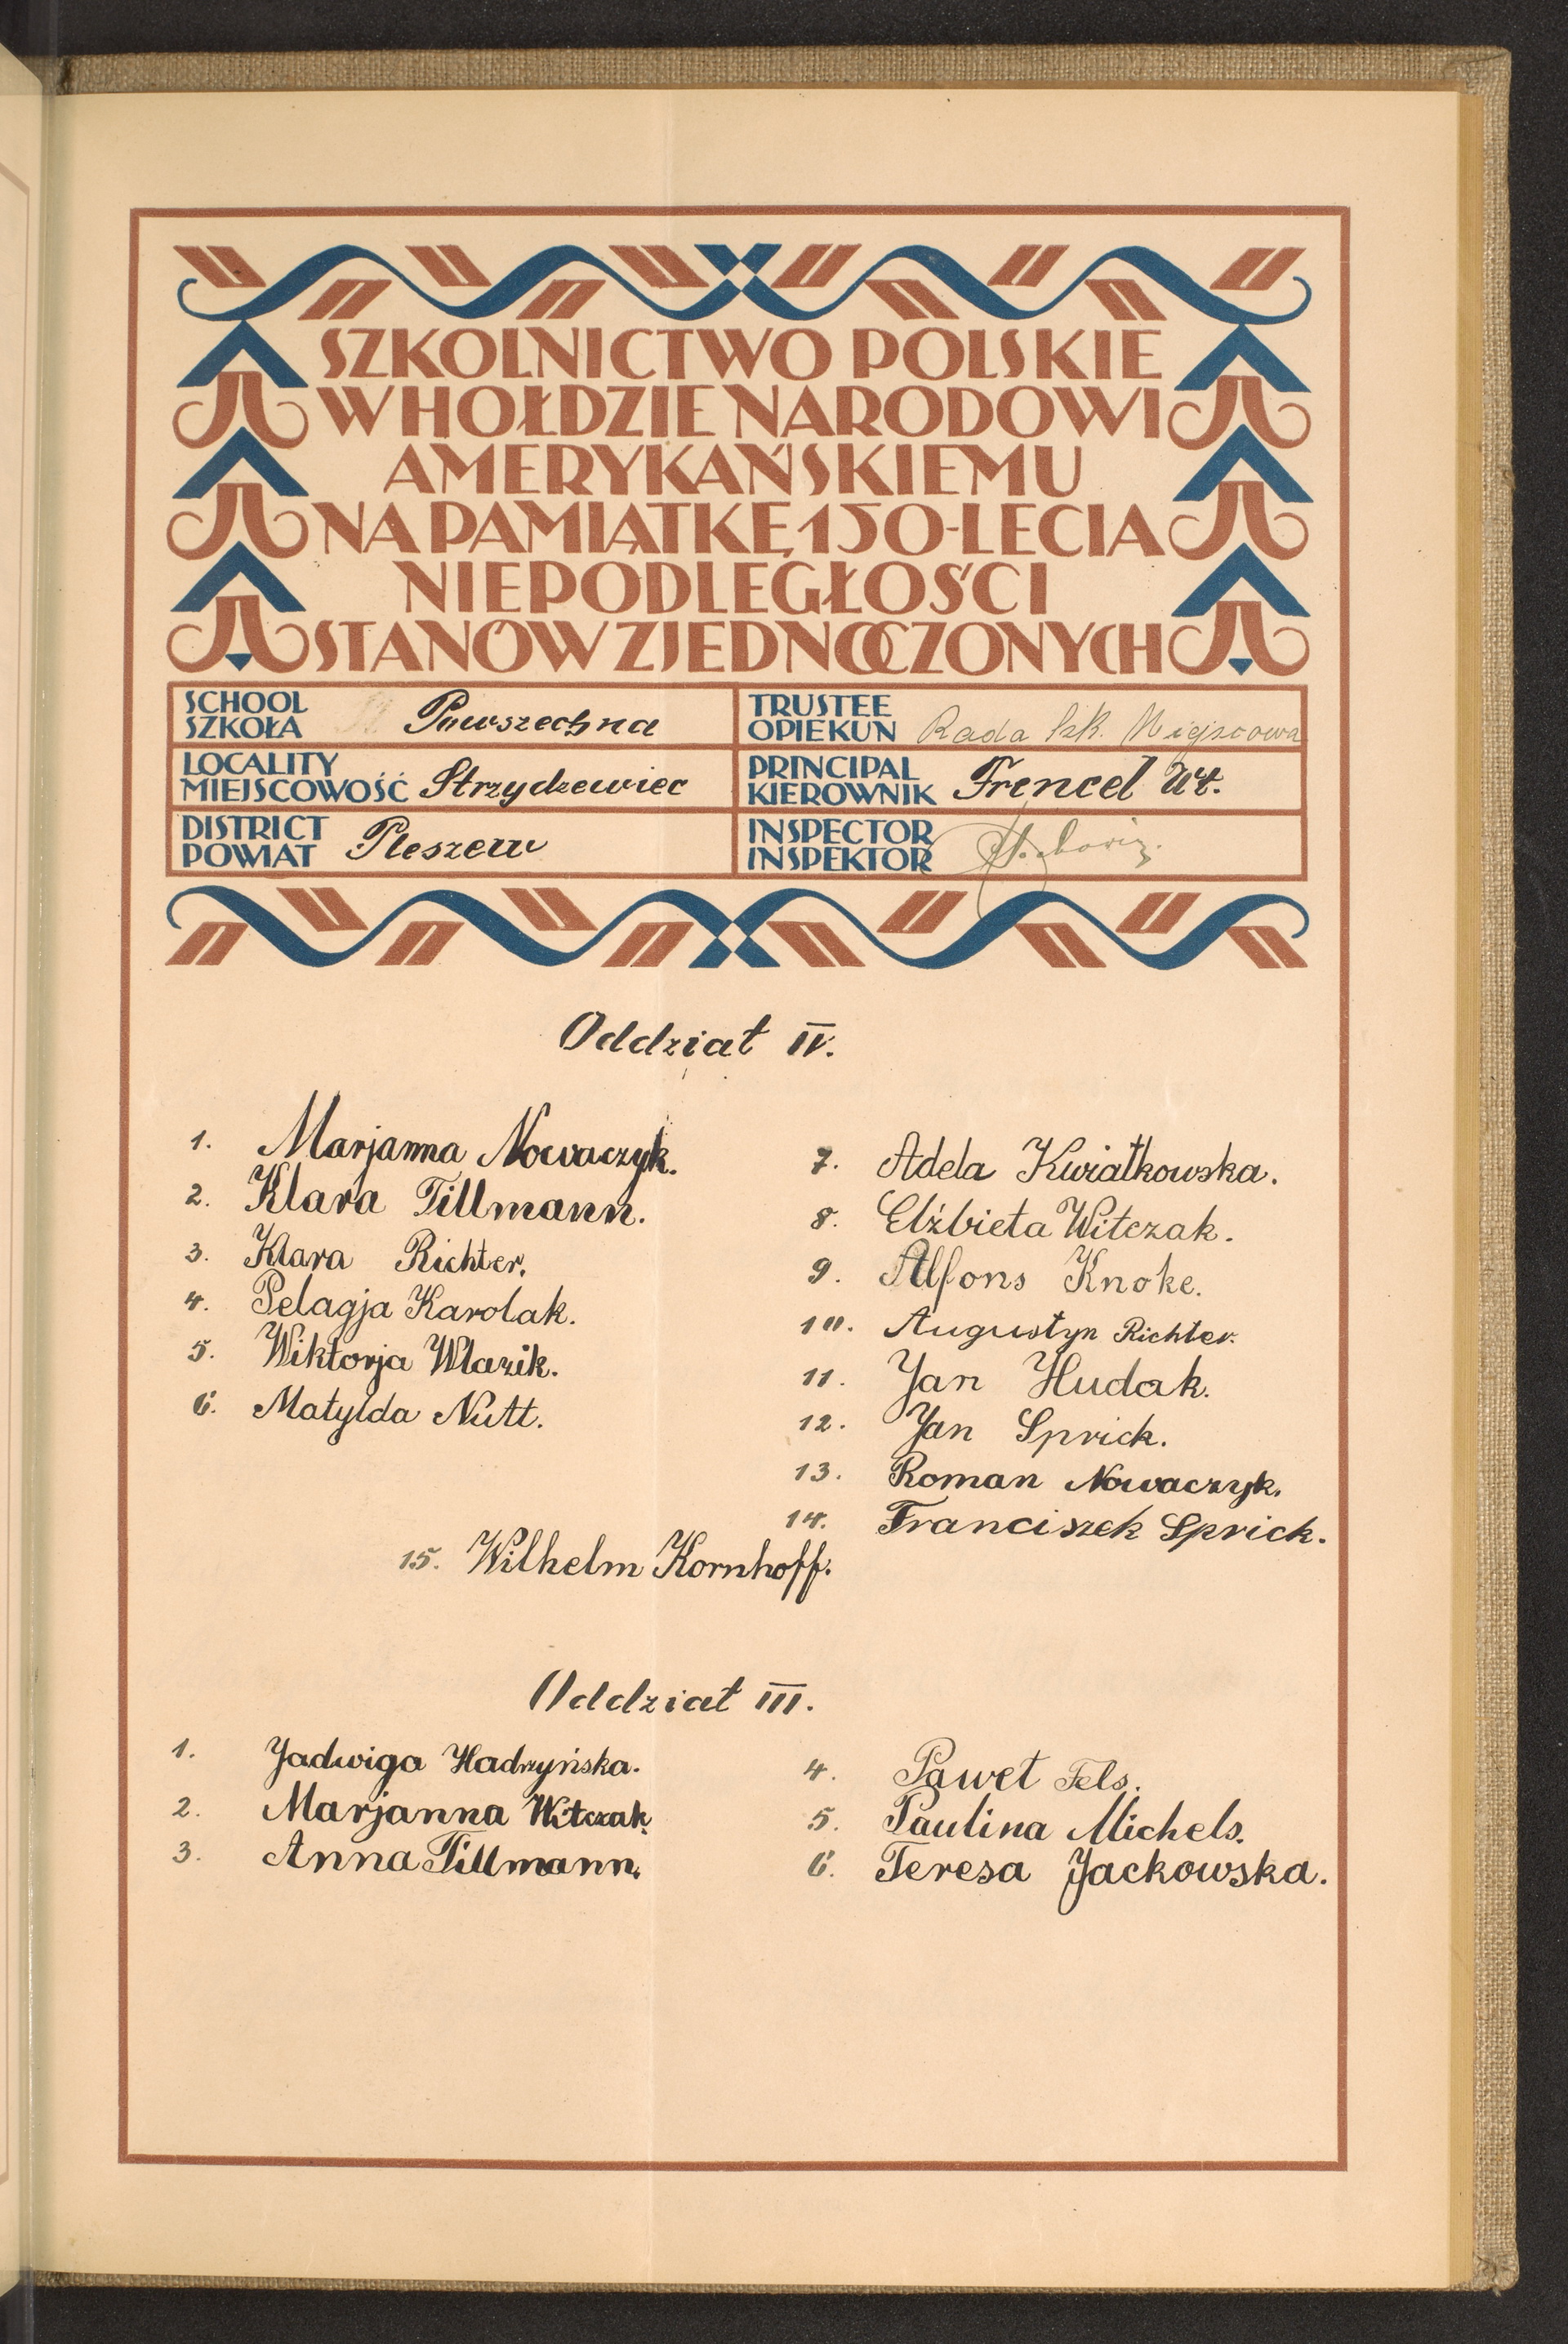 SZKOLNICTWO POLSKIE
W HOŁDZIE NARODOWI
AMERYKAŃSKIEMU
NA PAMIĄTKĘ 150-LECIA
NIEPODLEGŁOŚCI
STANÓW ZJEDNOCZONYCH
SCHOOL
SZKOŁA Powszechna
TRUSTEE
OPIEKUN Rada Szk. Miejscowa
LOCALITY
MIEJSCOWOŚĆ Strzydzewiec
PRINCIPAL
KIEROWNIK Frencel Wł.
DISTRICT
POWIAT Pleszew
INSPECTOR
INSPEKTOR
Oddział IV.
1. Marjanna Nowaczyk.
2. Klara Tillmann.
3. Klara Richter.
4. Pelagja Karolak.
5. Wiktorja Wlazik.
6. Matylda Nutt.
7. Adela Kwiatkowska.
8. Elżbieta Witczak.
9. Alfons Knoke.
10. Augustyn Richter.
11. Jan Hudak.
12. Jan Sprick.
13. Roman Nowaczyk.
14. Franciszek Sprick.
15. Wilhelm Kornhoff.
Oddział III.
1. Jadwiga Hadrzyńska.
2. Marjanna Witczak.
3. Anna Tillmann.
4. Paweł Fels.
5. Paulina Michels.
6. Teresa Jackowska.